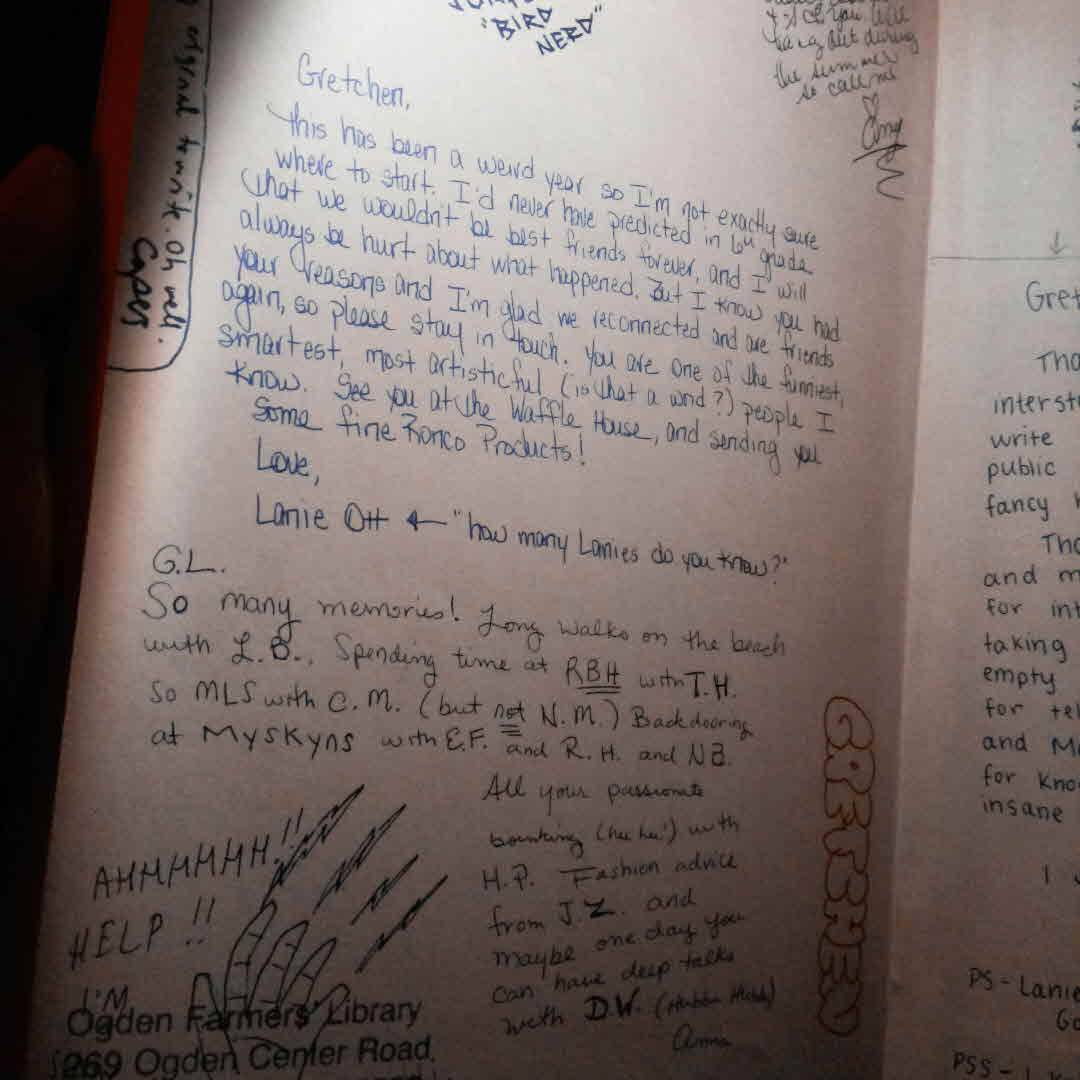 "BIRD
NERD"
the summer
so call me
Amy
original to write. Oh well.
Gretchen,
this has been a weird year so I'm not exactly sure
where to start. I'd never have predicted in 6th grade
that we wouldn't be best friends forever, and I will
always be hurt about what happened. But I know you had
your reasons and I'm glad we reconnected and are friends
again, so please stay in touch. You are one of the funniest,
smartest, most artisticful (is that a word?) people I
know. See you at the Waffle House, and sending you
some fine Ronco Products!
Love,
Lanie Ott ← "how many Lanies do you know?"
G.L.
So many memories! Long walks on the beach
with L.B., Spending time at RBH with T.H.
So MLS with C.M. (but not N.M.) Backdooring
at Myskyns with E.F. and R.H. and NB.
All your passionate
(hee hee!) with
H.P. Fashion advice
from J.Z. and
maybe one day you
can have deep talks
with D.W.
Anna
AHHHHHH!!
HELP!!
I'M
Ogden Farmers' Library
269 Ogden Center Road
GRETCHEN
Gret
Tha
interst
write
public
fancy
Tha
and m
for int
taking
empty
for tel
and Mc
for kno
insane
I
PS - Lanie
Go
PSS - I